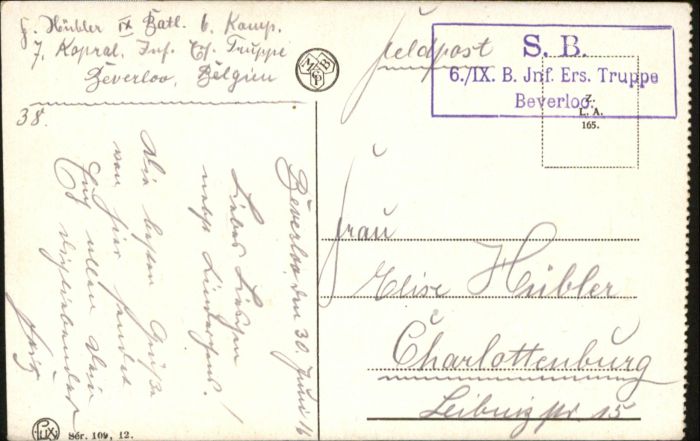 Hübler IX Batl. 6. Komp.
7. Kopral. Inf. Ers. Truppe
Beverloo, Belgien
Feldpost
S. B.
6./IX. B. Jnf. Ers. Truppe
Beverloo.
Z.
L. A.
165.
38.
Beverloo, den 30. Juni 16
Liebes Lieschen
nebst Kinderchens!
Die besten Grüße
von hier sendet
Euch allen Dein
Frau
Elise Hübler
Charlottenburg
Leibnizstr 15
Sér. 109, 12.